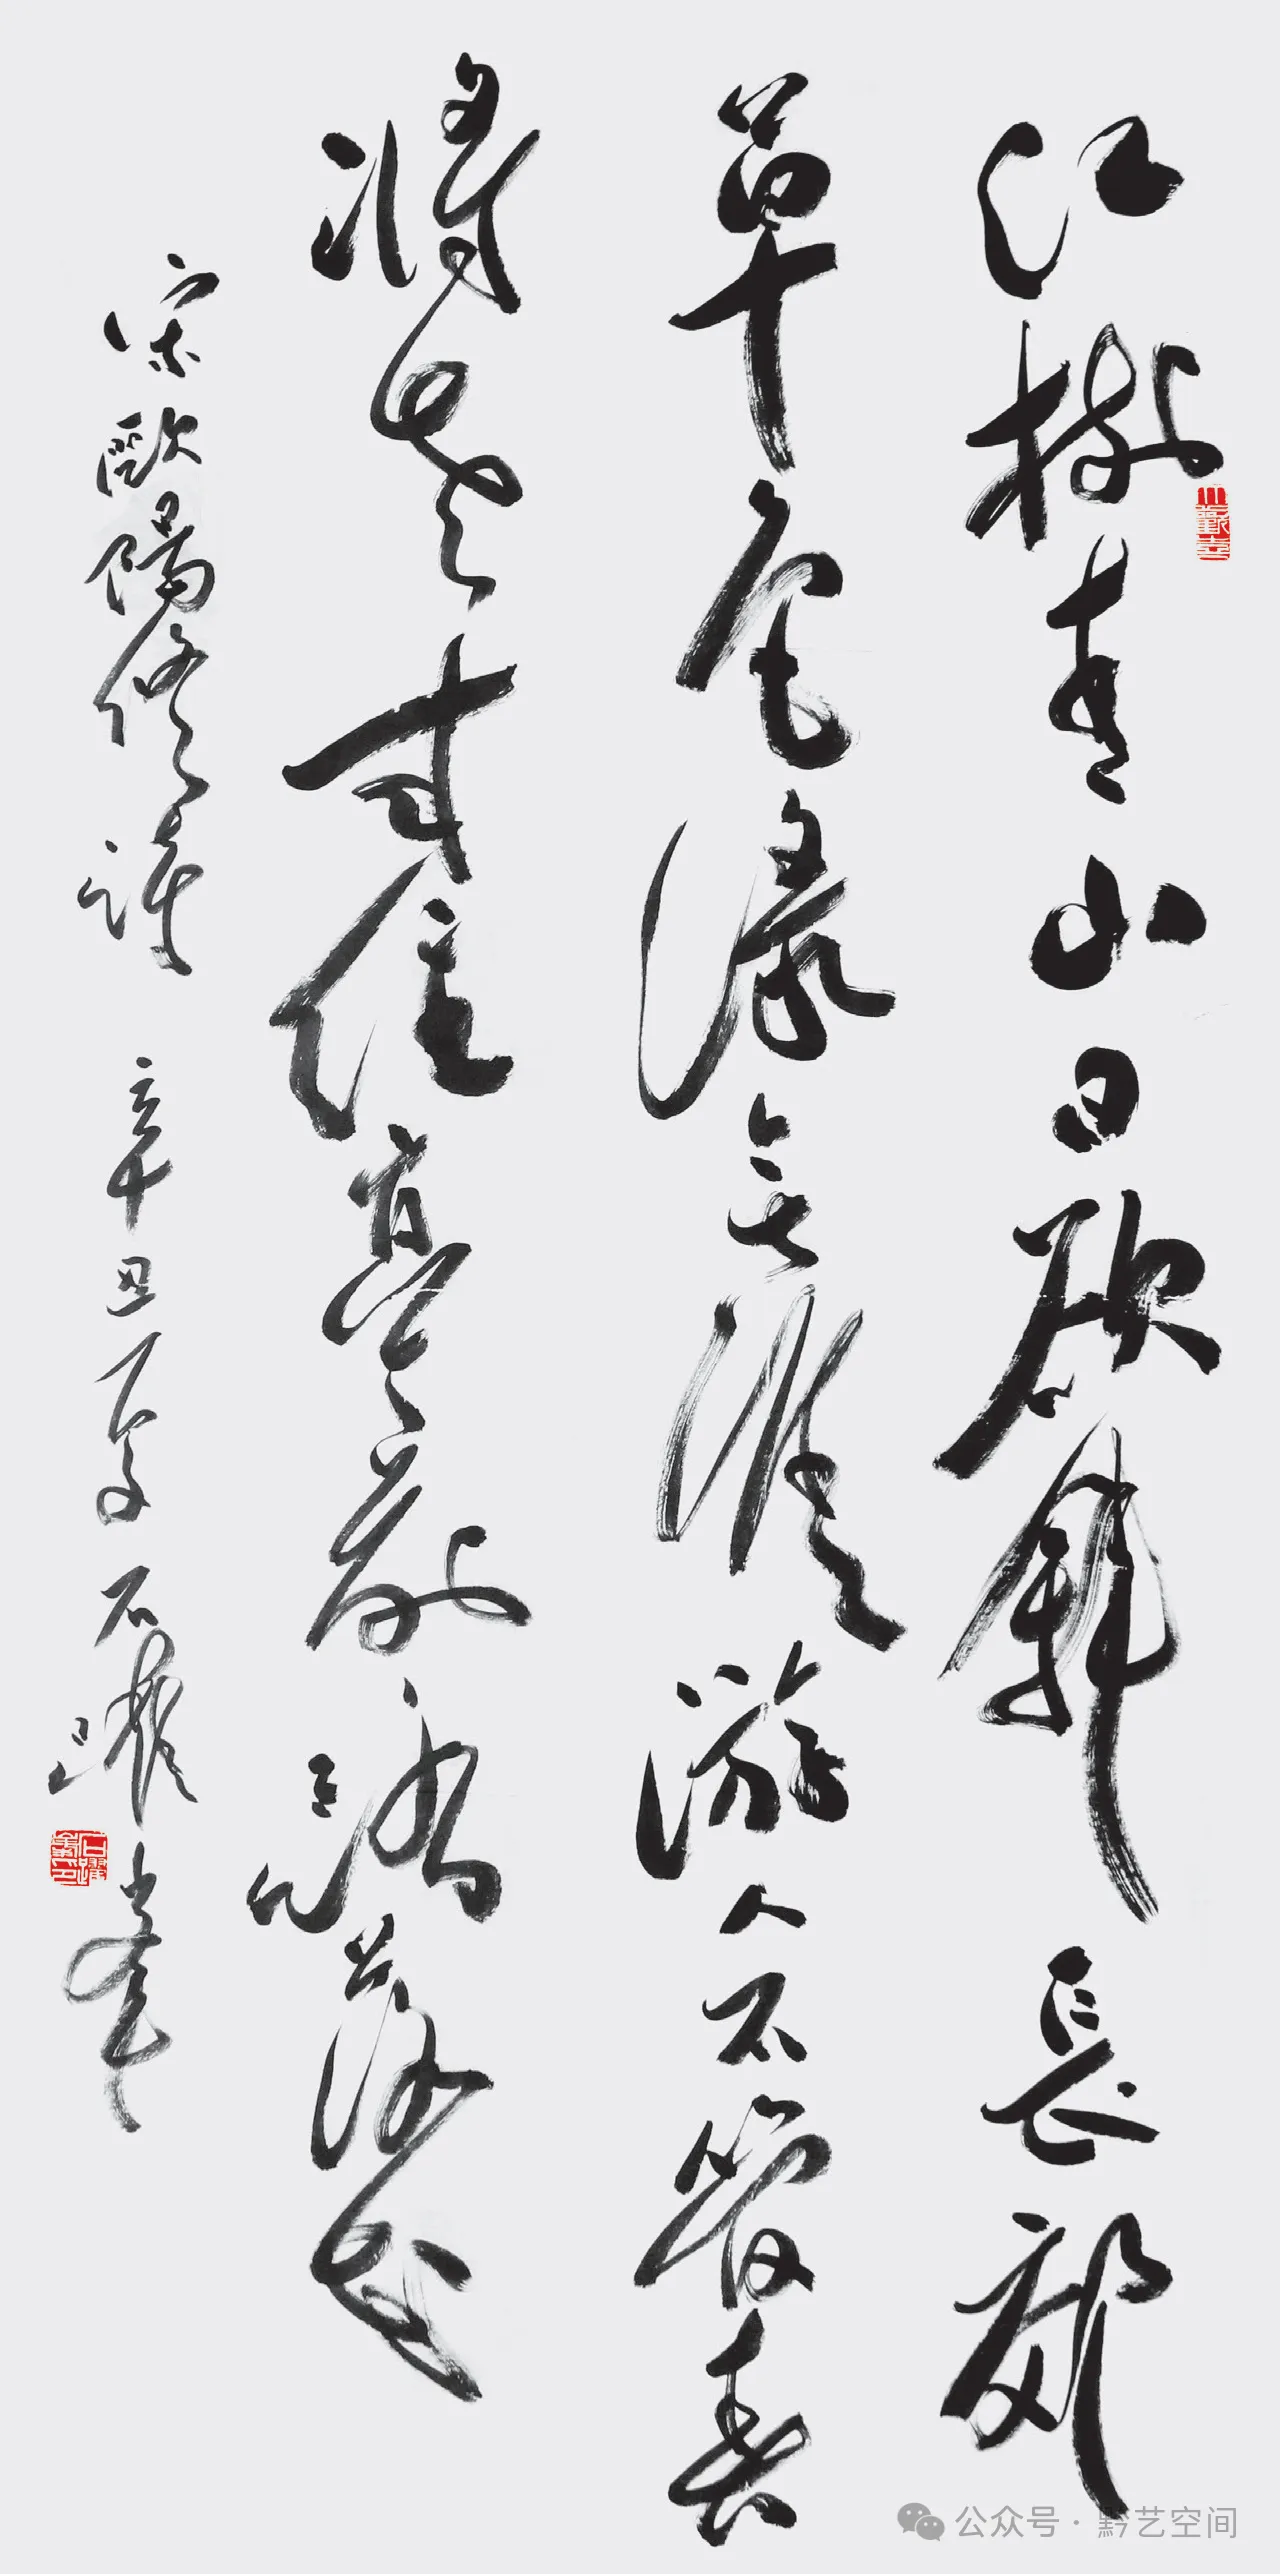 紅樹青山日欲斜長郊
草色綠無涯游人不管春
將老来往亭前踏落花
宋歐陽修詩 辛丑夏 石躍峯
公众号 · 黔艺空间